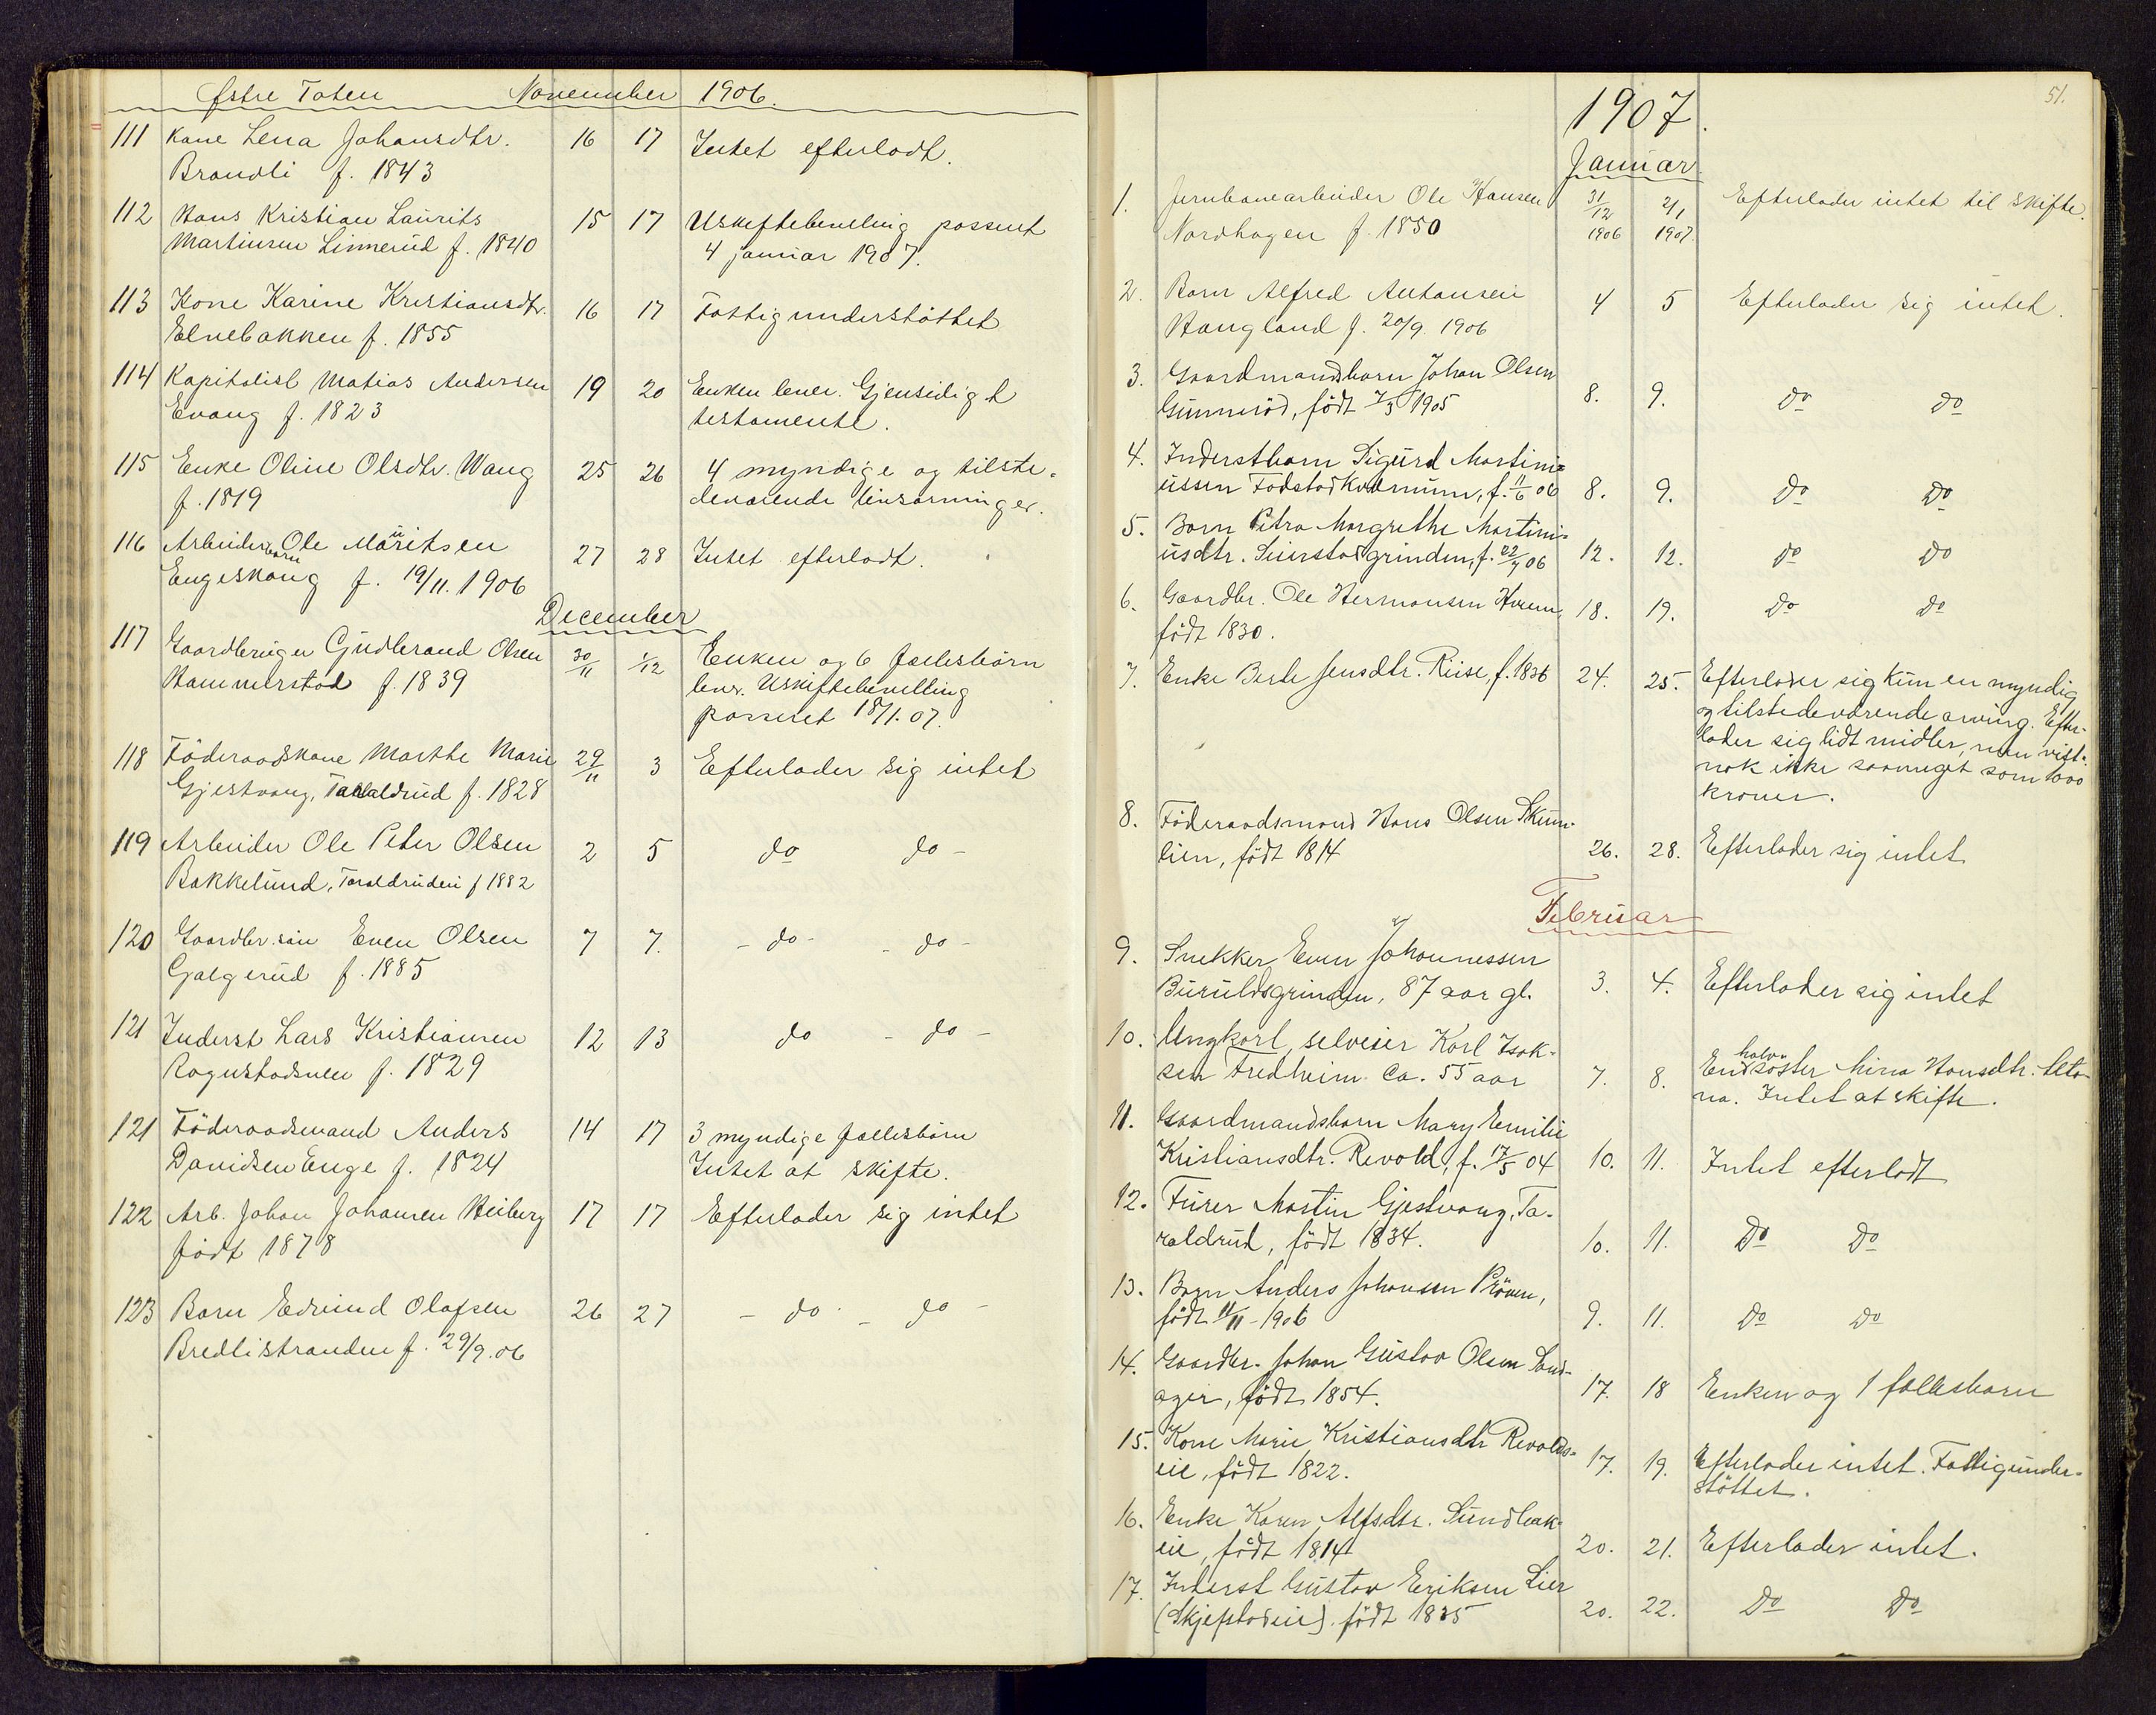 Østre Toten November 1906.
111 Kone Lena Johansdtr. 16 17 Intet efterladt.
Brandli f. 1843
112 Hans Kristian Laurits 15 17 Uskiftebevilling passeret
Martinsen Linnerud f. 1840 4 januar 1907.
113 Kone Karine Kristiansdtr. 16 17 Fattigunderstöttet
Elnebakken f. 1855
114 Kapitalist Matias Andersen 19 20 Enken lever. Gjensidigt
Evang f. 1823 testamente.
115 Enke Oline Olsdtr. Wang 25 26 4 myndige og tilste-
f. 1819 deværende livsarvinger.
116 Arbeiderbarn Ole Mauritsen 27 28 Intet efterladt.
Engeskaug f. 19/11. 1906
December
117 Gaardbruger Gudbrand Olsen 30/11 1/12 Enken og 6 fællesbørn
Hammerstad f. 1839 lever. Uskiftebevilling
passeret 18/1. 07.
118 Föderaadskone Marthe Marie 29/11 3 Efterlader sig intet
Gjestvang, Taraldrud f. 1828
119 Arbeider Ole Peter Olsen 2 5 do do -
Bakkelund, Taraldrudeie f 1882
120 Gaardbr. sön Even Olsen 7 7. - do - - do -
Galgerud f. 1885
121 Inderst Lars Kristiansen 12 13 do - do -
Rognstadsveen f. 1829
121 Föderaadsmand Anders 14 17 3 myndige fællesbörn
Davidsen Enge f. 1824 Intet at skifte.
122 Arb. Johan Johansen Heiberg 17 17 Efterlader sig intet
födt 1878
123 Barn Edvind Olafsen 26 27 - do - do -
Bredlistranden f. 29/9. 06
51.
1907.
Januar
1. Jernbanearbeider Ole Hansen 31/12 2/1 Efterlader intet til skifte.
Nordhagen f. 1850 1906 1907.
2. Barn Alfred Antonsen 4 5 Efterlader sig intet.
Haugland f. 20/9. 1906
3. Gaardmandsbarn Johan Olsen 8. 9. do do
Gunneröd, födt 7/3 1905
4. Inderstbarn Sigurd Martini-
ussen Fodstadkvernum, f. 11/6 06 8. 9. do do
5. Barn Petra Margrethe Martini-
usdtr. Seierstadgrinden, f. 22/4 06 12. 12. do do
6. Gaardbr. Ole Hermansen Hveem, 18. 19. do do
födt 1830.
7. Enke Berte Jensdtr. Riise, f. 1836 24. 25. Efterlader sig kun en myndig
og tilstedeværende arving. Efter-
lader sig lidt midler, men vist-
nok ikke saameget som 1000
kroner.
8. Föderaadsmand Hans Olsen Skum-
lien, födt 1814 26. 28. Efterlader sig intet
Februar
9. Snekker Even Johannessen
Buruldsgrinden, 87 aar gl. 3. 4. Efterlader sig intet
10. Ungkarl, selveier Karl Isak-
sen Fredheim. Ca. 55 aar 7. 8. En halvsöster Mina Hansdtr. Sto-
na. Intet at skifte.
11. Gaardmandsbarn Mary Emilie
Kristiansdtr. Revold, f. 17/5 04 10. 11. Intet efterladt
12. Furer Martin Gjestvang, Ta-
raldrud, födt 1834. 10. 11. Do Do
13. Barn Anders Johansen Pröven,
födt 11/11 - 1906 9. 11. Do Do
14. Gaardbr. Johan Gustav Olsen Sand-
ager, födt 1854. 17. 18 Enken og 1 fællesbarn
15. Kone Marie Kristiansdtr Revolds-
eie, födt 1822. 17. 19. Efterlader intet. Fattigunder-
stöttet.
16. Enke Karen Alfsdtr. Sundbak-
eie, födt 1814 20. 21. Efterlader intet.
17. Inderst Gustav Eriksen Lier
(Skjefstadeie). födt 1835 20. 22. Do Do